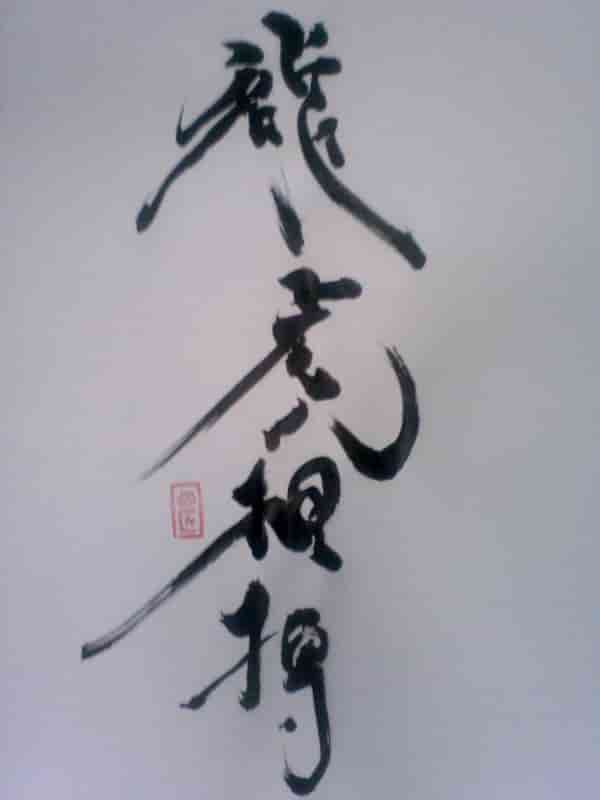 龍虎相搏